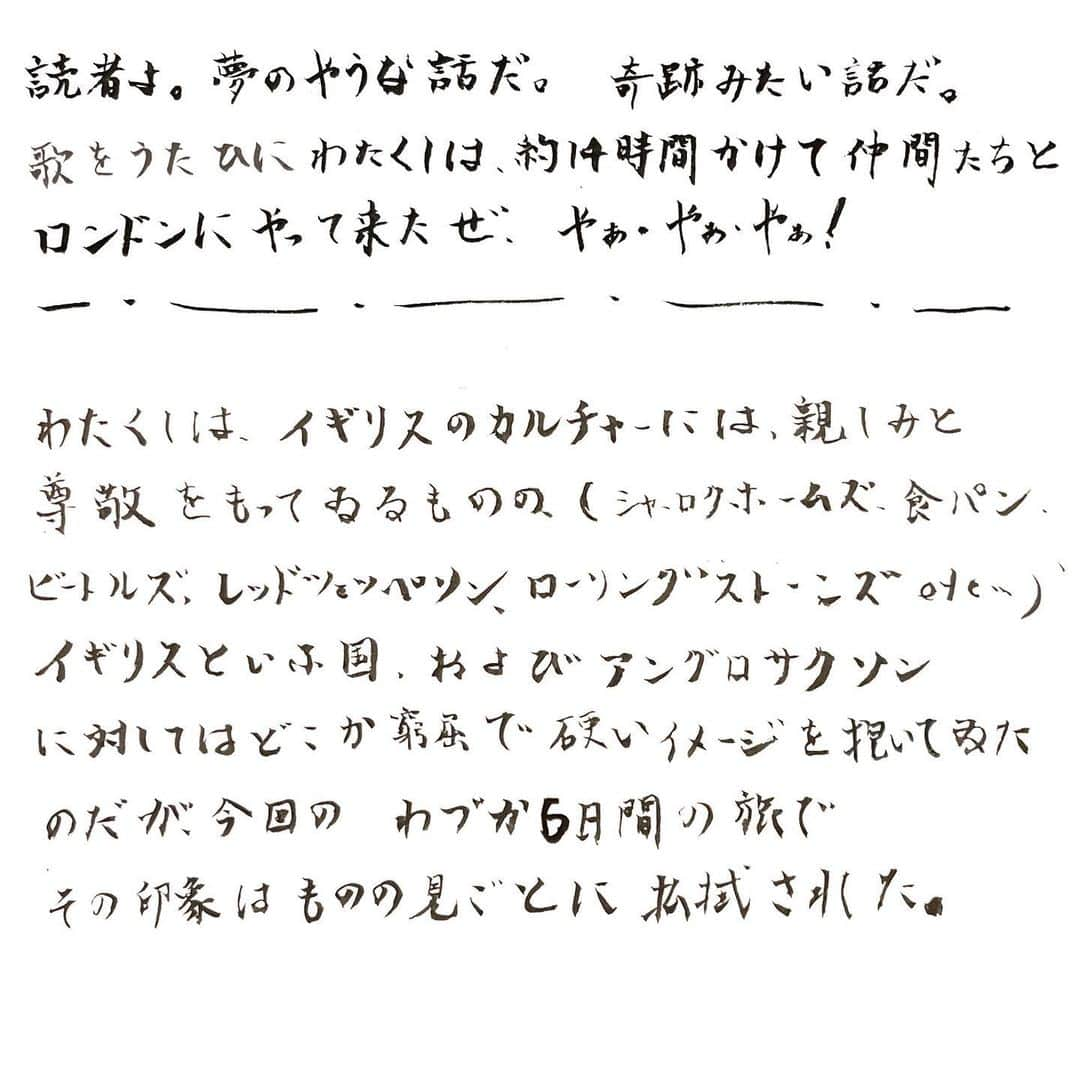 読者よ。夢のやうな話だ。 奇跡みたい話だ。
歌をうたひにわたくしは、約14時間かけて仲間たちと
ロンドンにやって来たぜ、やぁ・やぁ・やぁ!
わたくしは、イギリスのカルチャーには、親しみと
尊敬をもってゐるものの、(シャーロック・ホームズ、食パン、
ビートルズ、レッドツェッペリン、ローリングストーンズ etc…)
イギリスといふ国、およびアングロサクソン
に対してはどこか窮屈で硬いイメージを抱いてゐた
のだが、今回の わづか6日間の旅で
その印象はものの見ごとに払拭された。